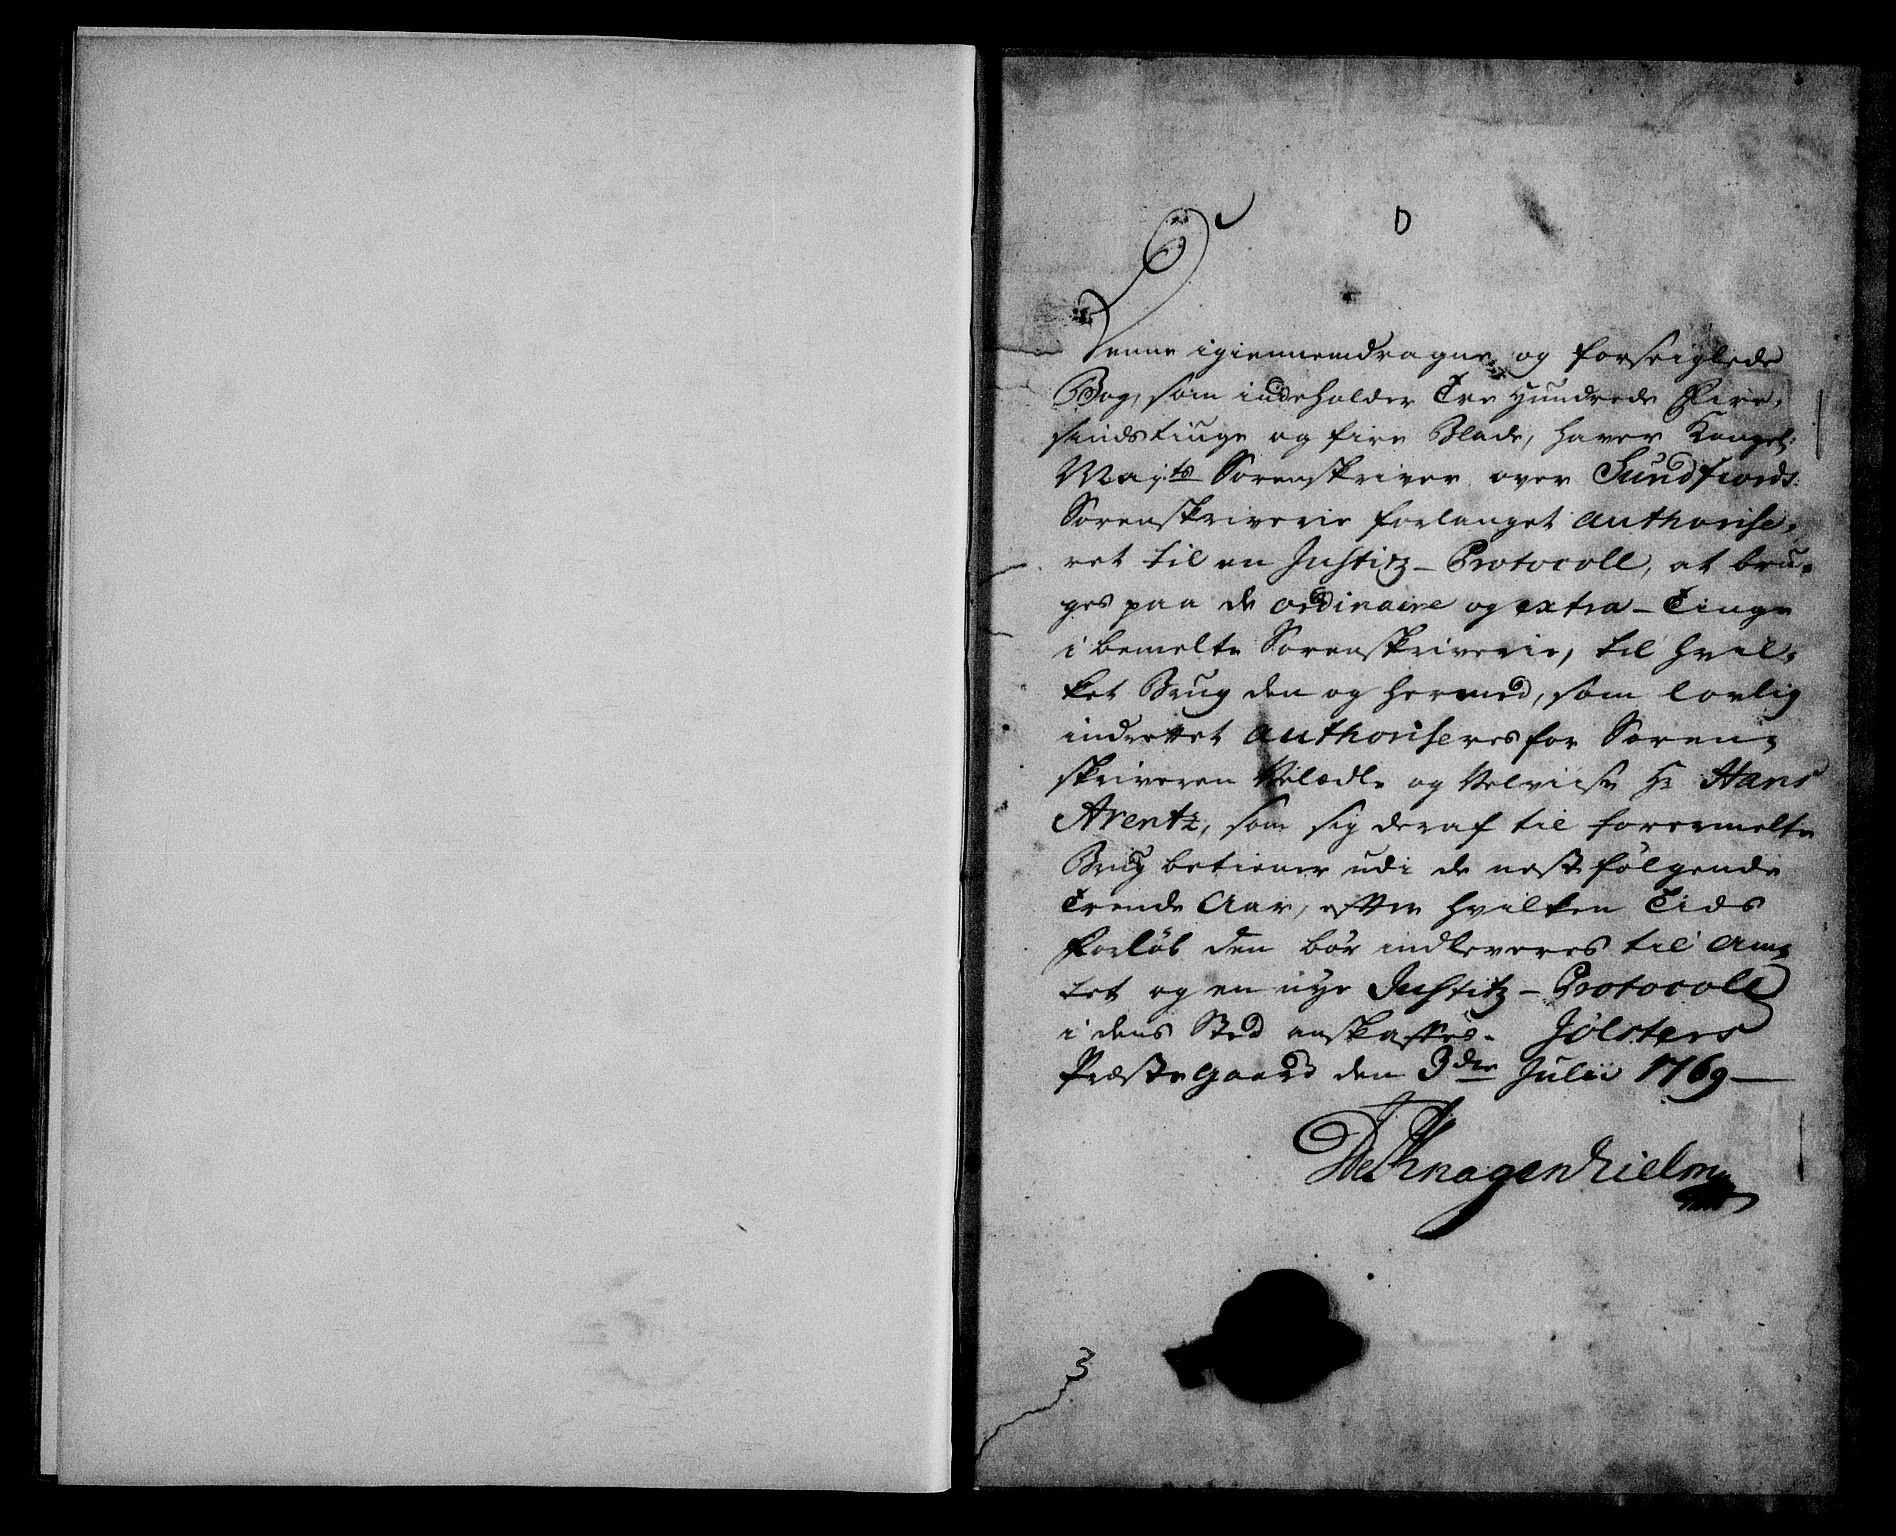 Denne igiennemdragne og forseiglede
Bog, som indeholder Tre Hundrede Fire,
sindstiuge og fire Blade, haver Kongel:
Maj:ts Sorenskriver over Sundfiords
Sorenskriverie forlanget authorise,
ret til en Justitz-Protocoll, at bru,
ges paa de ordinaire og extra-Tinge
i bemelte Sorenskriverie, til hvil,
ket Brug den og hermed, som lovlig
indrettet authoriseres for Soren,
skriveren Velædle og Velviise Hr Hans
Arentz, som sig deraf til forermelte
Brug betiener udi de nestfølgende
Trende Aar, efter hvilken Tids
forløb den bør indleveres til Am,
tet og en nye Justitz-Protocoll
i dens Sted anskaffes. Jølsters
Præste Gaard den 3die Julii 1769
De Knagenhielm